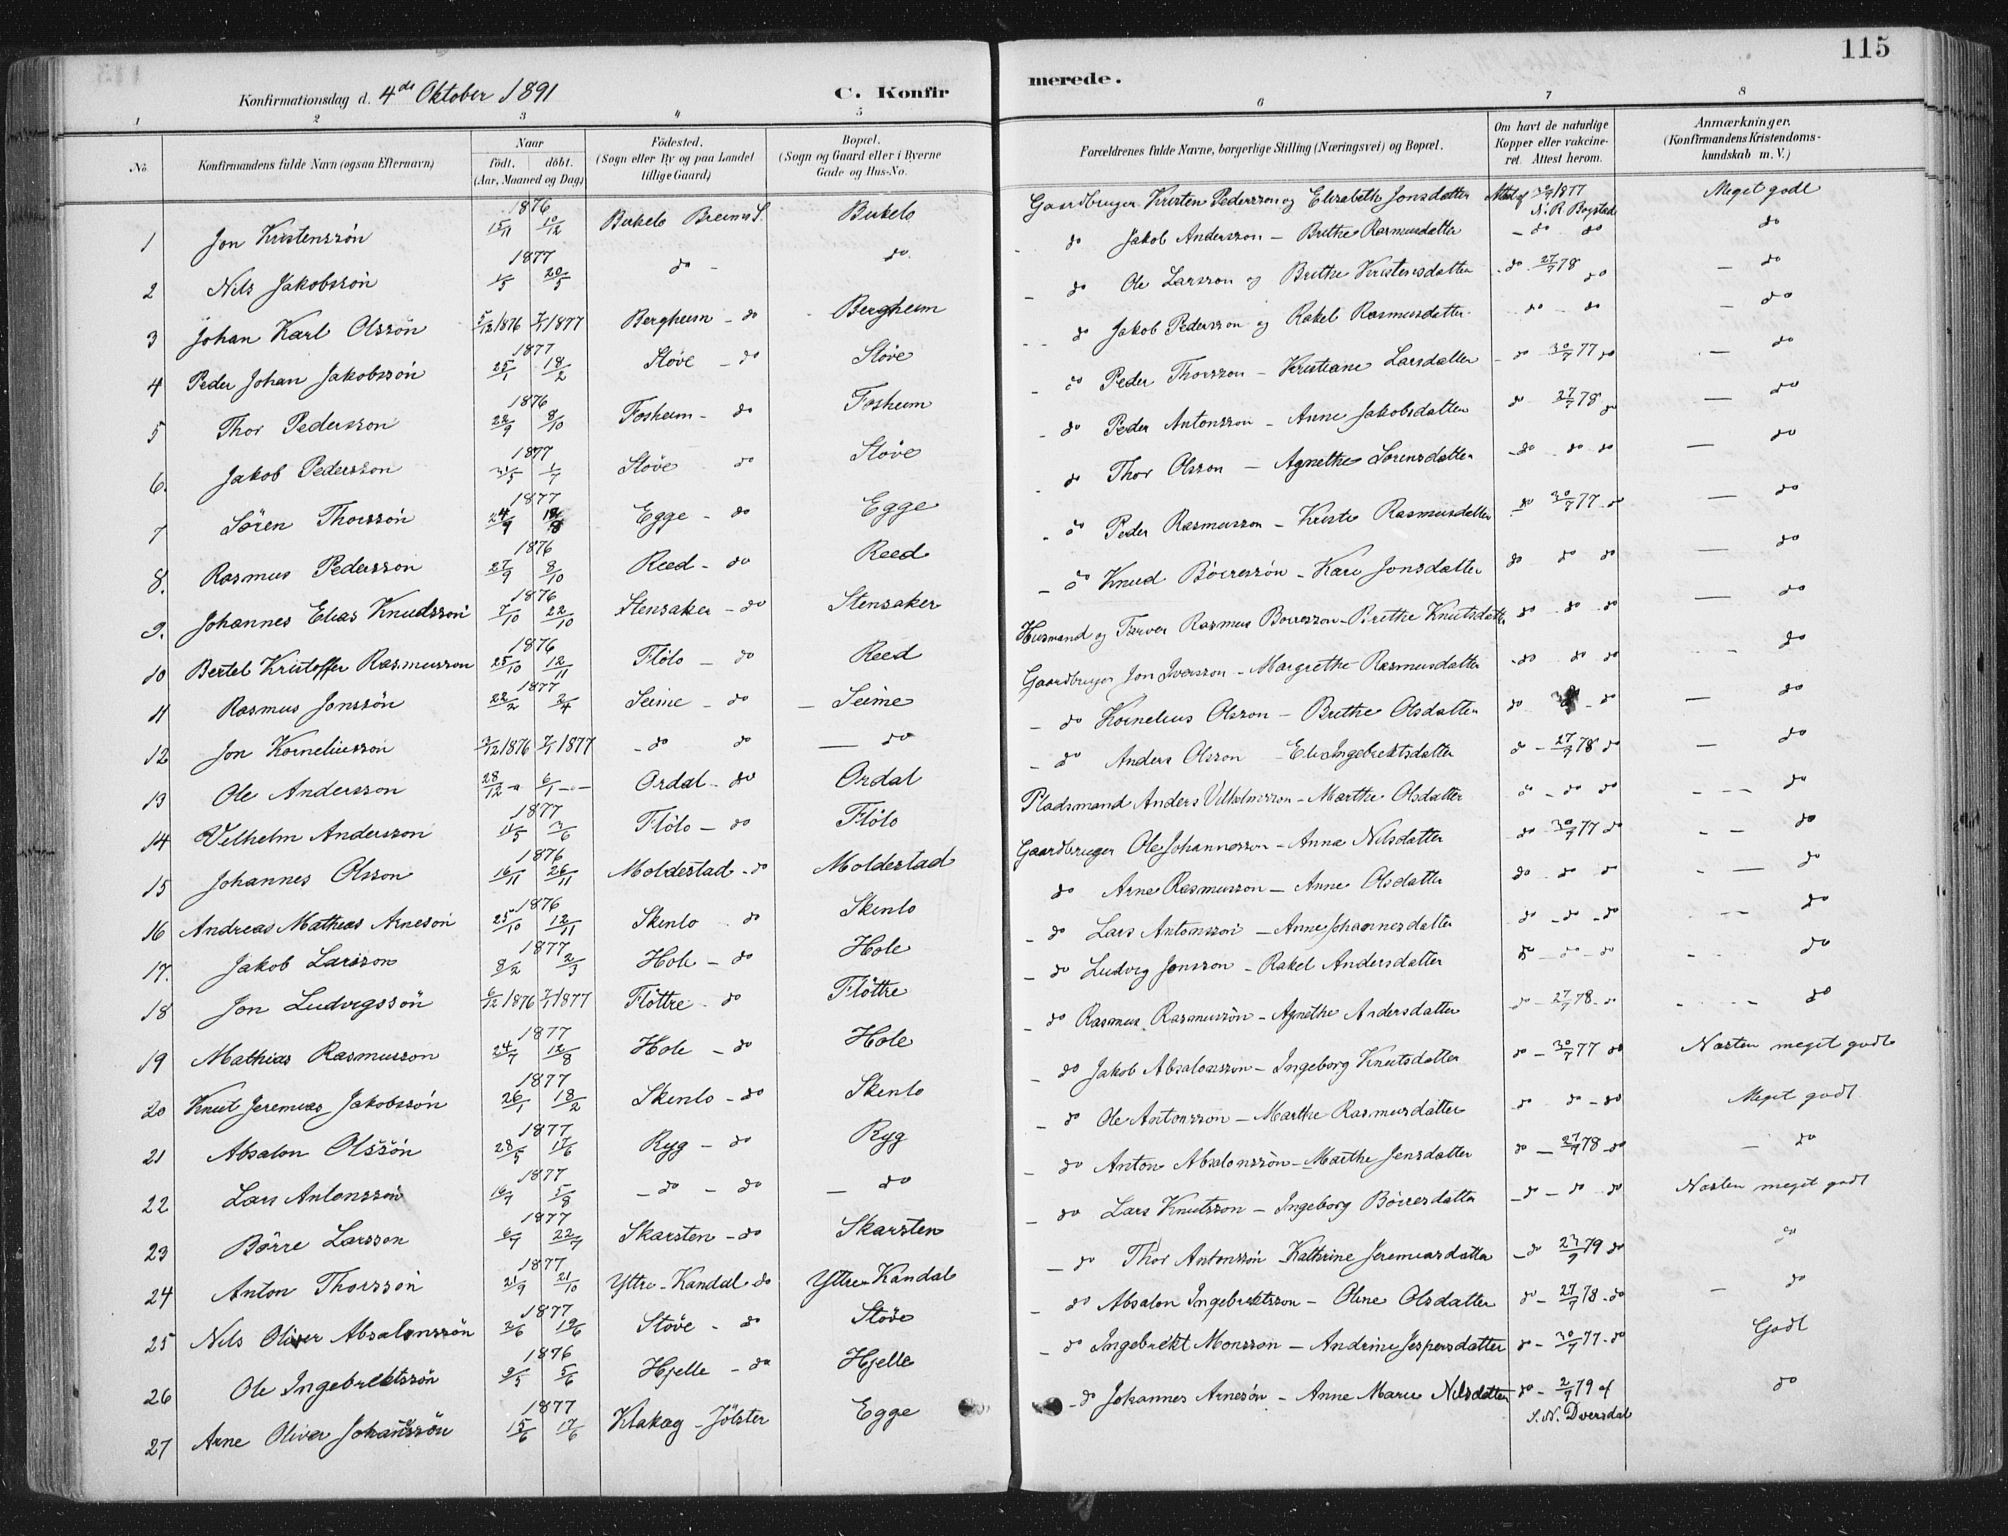 115
Konfirmationsdag d. 4de Oktober 1891 C. Konfirmerede.
1 2 3 4 5 6 7 8
No. Konfirmandens fulde Navn (ogsaa Efternavn) Naar födt. döbt. (Aar, Maaned og Dag) Födested. (Sogn eller By og paa Landet tillige Gaard) Bopæl. (Sogn og Gaard eller i Byerne Gade og Hus-No. Forældrenes fulde Navne, borgerlige Stilling (Næringsvei) og Bopæl. Om havt de naturlige Kopper eller vakcineret. Attest herom. Anmærkninger. (Konfirmandens Kristendomskundskab m.V.)
1 Jon Kristenssön 1876 15/11 10/12 Birkelo Breims S. Birkelo Gaardbruger Kristen Pederssön og Elisabeth Jonsdatter Attest af 30/7 1877 N. R. Bogstad Meget godt
2 Nils Jakobssön 1877 1/5 20/5 do - do - do Jakob Anderssön - Brithe Rasmusdatter - do do do
3 Johan Karl Olssön 5/12 1876 7/1 1877 Bergheim - do Bergheim - do Ole Larsson og Brithe Kristensdatter - do 27/7 78 do - do
4 Peder Johan Jakobssön 1877 25/1 18/2 Stöve - do Stöve - do Jakob Pederssön og Rakel Rasmusdatter do - do - do
5 Thor Pederssön 1876 22/9 8/10 Fosheim - do Fosheim - do Peder Thorsson - Kristiane Larsdatter - do 30/7 77 do - do
6. Jakob Pedersson 1877 31/5 1/7 Stöve do Stöve - do Peder Antonsson - Anne Jakobsdatter do 27/7 78 do - do
7 Sören Thorssön 1877 24/9 Egge - do Egge - do Thor Olsson - Agnethe Sörensdatter - do do do - do
8. Rasmus Pederssön 1876 27/9 8/10 Reed - do Reed - do Peder Rasmusson - Kristi Rasmusdatter do 30/7 77 - do - do
9. Johannes Elias Knudssön 1876 7/10 22/10 Stensaker - do Stensaker - do Knud Böerressön - Kari Jonsdatter do do do - do
10 Bertel Kristoffer Rasmusson 1876 25/10 12/11 Flölo - do Reed Husmand og Farver Rasmus Börresson - Brithe Knutsdatter do do do - do
11 Rasmus Jonssön 1877 22/2 2/4 Seime - do - Seime Gaardbruger Jon Iversson - Margrethe Rasmusdatter - do do do - do
12 Jon Korneliussön 3/12 1876 7/1 1877 - do do - do - do Kornelius Olsson - Brithe Olsdatter do - do - do
13 Ole Andersson 28/12 - 6/1 - Ordal - do Ordal - do Anders Olsson - Eli Ingebrektsdatter do - 27/7 78 do - do
14 Vilhelm Andersson 1877 11/5 3/6 Flölo - do Flölo Pladsmand Anders Vilhelmsson - Marthe Olsdatter do - do do - do
15 Johannes Olsson 1876 16/11 26/11 Moldestad - do Moldestad Gaardbruger Ole Johannesson - Anna Nilsdatter do - 30/7 77 do - - do
16 Andreas Mathias Arnesön 1876 25/10 12/11 Skenlo do Skenlo do Arne Rasmusson - Anne Olsdatter do do do - do
17. Jakob Larsson 1877 8/2 2/3 Hole - do Hole - do Lars Antonsson - Anne Johannesdatter do - do - do do
18 Jon Ludvigssön 6/12 1876 7/1 1877 Flöttre - do Flöttre - do Ludvig Jonsson - Rakel Andersdatter do - do - do do
19 Mathias Rasmusson 1877 24/7 12/8 Hole - do Hole - do Rasmus Rasmussön - Agnethe Andersdatter do - 27/7 78 - do do
20 Knut Jeremias Jakobssön 1877 26/1 18/2 Skenlo - do Skenlo - do Jakob Absalonsson - Ingeborg Knutsdatter do - 30/7 77 do Næsten meget godt
21 Absalon Olssön 1877 28/5 17/6 Ryg - do Ryg - do Ole Antonsson - Marthe Rasmusdatter do do - do Meget godt
22 Lars Antonssön 1877 16/7 5/8 - do - do - do - do Anton Absalonssön - Marthe Jensdatter do - 27/7 78 - do - do
23 Börre Larsson 1877 6/7 22/7 Skarsten - do Skarsten - do Lars Knutsson - Ingeborg Börresdatter - do - do do Næsten meget godt
24 Anton Thorssön 1877 21/9 21/10 Yttre - Kandal do Yttre - Kandal - do Thor Antonssön - Kathrine Jeremiasdatter - do 23/9 79 do do
25 Nils Oliver Absalonssön 1877 2/6 Stöve - do Stöve - do Absalon Ingebrektsson - Oline Olsdatter do - 27/7 78 - do - do
26 Ole Ingebrektssön 1876 9/5 5/6 Hjelle - do Hjelle - do Ingebrekt Monsson - Andrine Jespersdatter do - 30/7 77 - do Godt
27 Arne Oliver Johanssön 1877 15/6 17/6 Klakag - Jölster Egge - do Johannes Arnesön - Anne Marie Nilsdatter do - 2/7 79 af S. N. Dvergsdal do